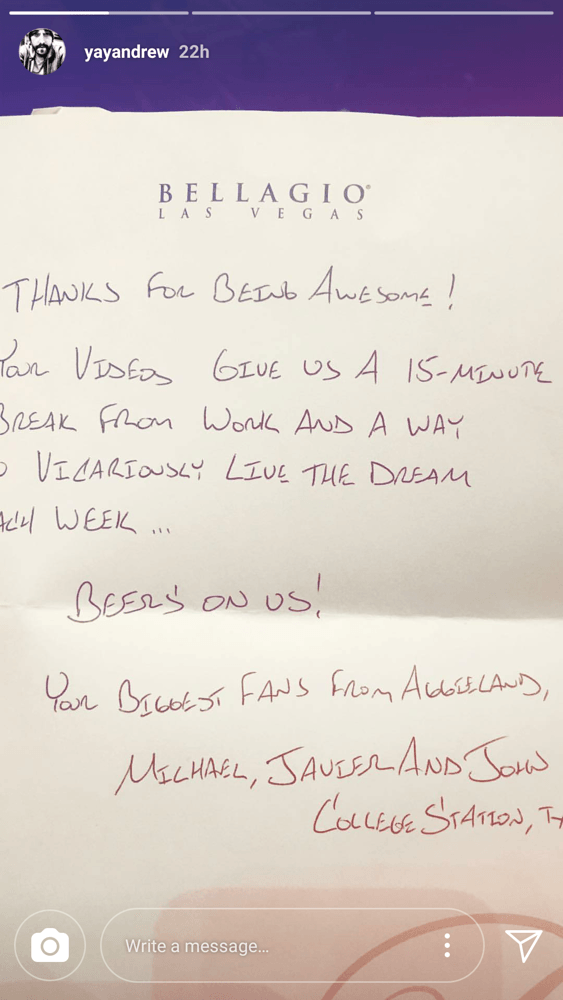 yayandrew 22h
BELLAGIO®
LAS VEGAS
THANKS FOR BEING AWESOME!
YOUR VIDEOS GIVE US A 15-MINUTE
BREAK FROM WORK AND A WAY
O VICARIOUSLY LIVE THE DREAM
ACH WEEK...
BEERS ON US!
YOUR BIGGEST FANS FROM AGGIELAND,
MICHAEL, JAVIER AND JOHN
COLLEGE STATION, TX
Write a message...